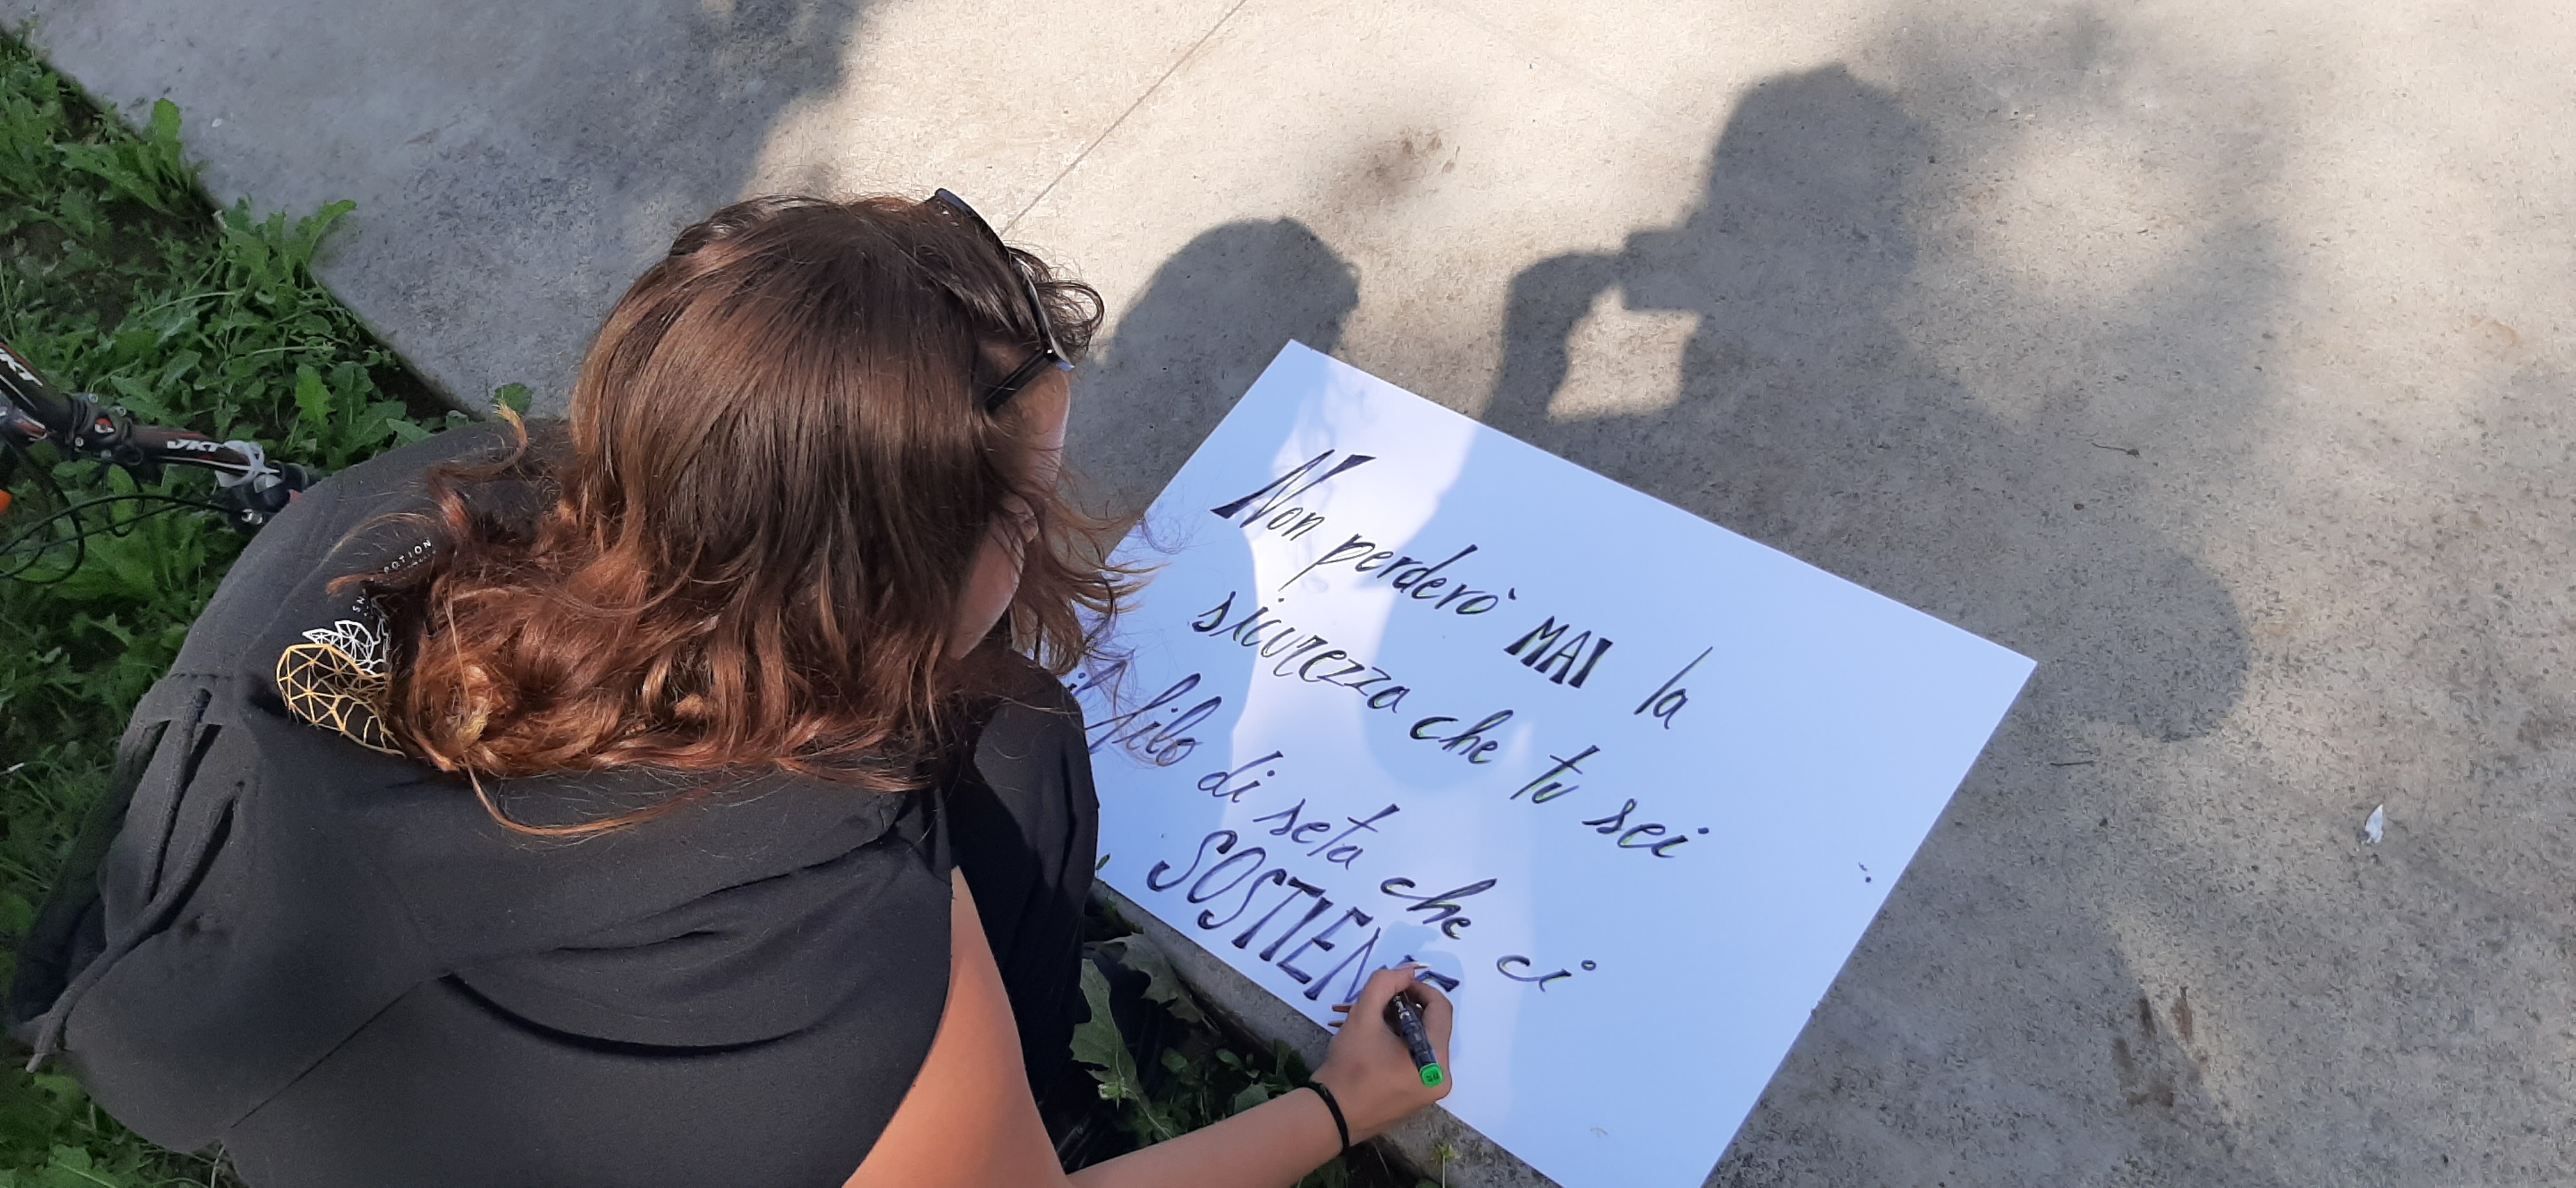 Non perderò MAI la
sicurezza che tu sei
il filo di seta che ci
SOSTIENE
VKT
POTION